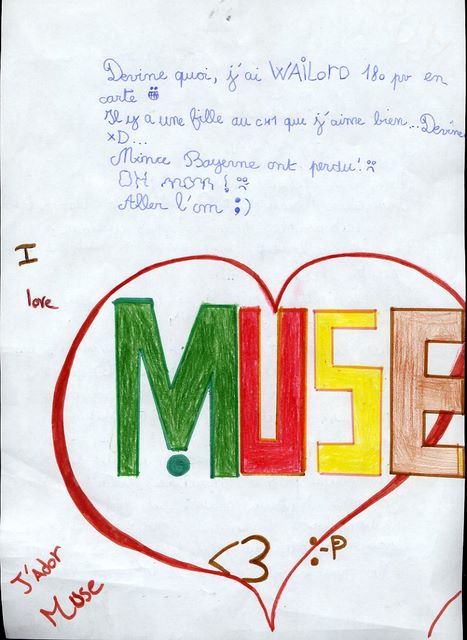 Devine quoi, j'ai WAiLorD 180 pv en
carte
Il y a une fille au CM1 que j'aime bien...Devine
xD...
Mince Bayerne ont perdu!
OH non !
Aller l'om ;)
I
love
MUSE
<3 :-P
J'Ador
Muse